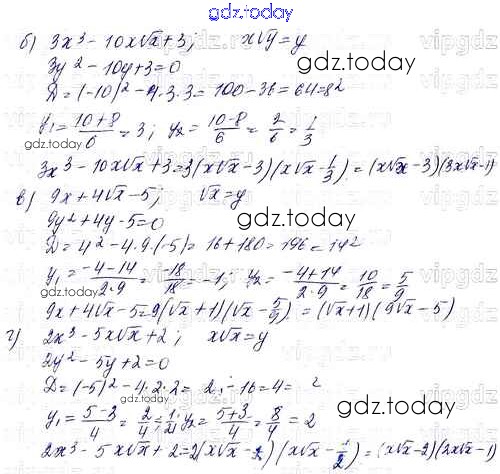 gdz.today
б) 3x³ - 10x√x + 3; x√y = y
3y² - 10y + 3 = 0
D = (-10)² - 4·3·3 = 100 - 36 = 64 = 8²
gdz.today
y₁ = (10+8)/6 = 3; y₂ = (10-8)/6 = 2/6 = 1/3
gdz.today
3x³ - 10x√x + 3 = 3(x√x - 3)(x√x - 1/3) = (x√x - 3)(3x√x - 1)
в) 9x + 4√x - 5; √x = y
gdz.today
9y² + 4y - 5 = 0
D = 4² - 4·9·(-5) = 16 + 180 = 196 = 14²
y₁ = (-4-14)/(2·9) = -18/18 = -1; y₂ = (-4+14)/(2·9) = 10/18 = 5/9
gdz.today
9x + 4√x - 5 = 9(√x + 1)(√x - 5/9) = (√x + 1)(9√x - 5)
г) 2x³ - 5x√x + 2; x√x = y
gdz.today
2y² - 5y + 2 = 0
D = (-5)² - 4·2·2 = 2 - 16 = 4 = ²
gdz.today
y₁ = (5-3)/4 = 2/4 = 1/2; y₂ = (5+3)/4 = 8/4 = 2
gdz.today
2x³ - 5x√x + 2 = 2(x√x - 2)(x√x - 1/2) = (x√x - 2)(2x√x - 1)